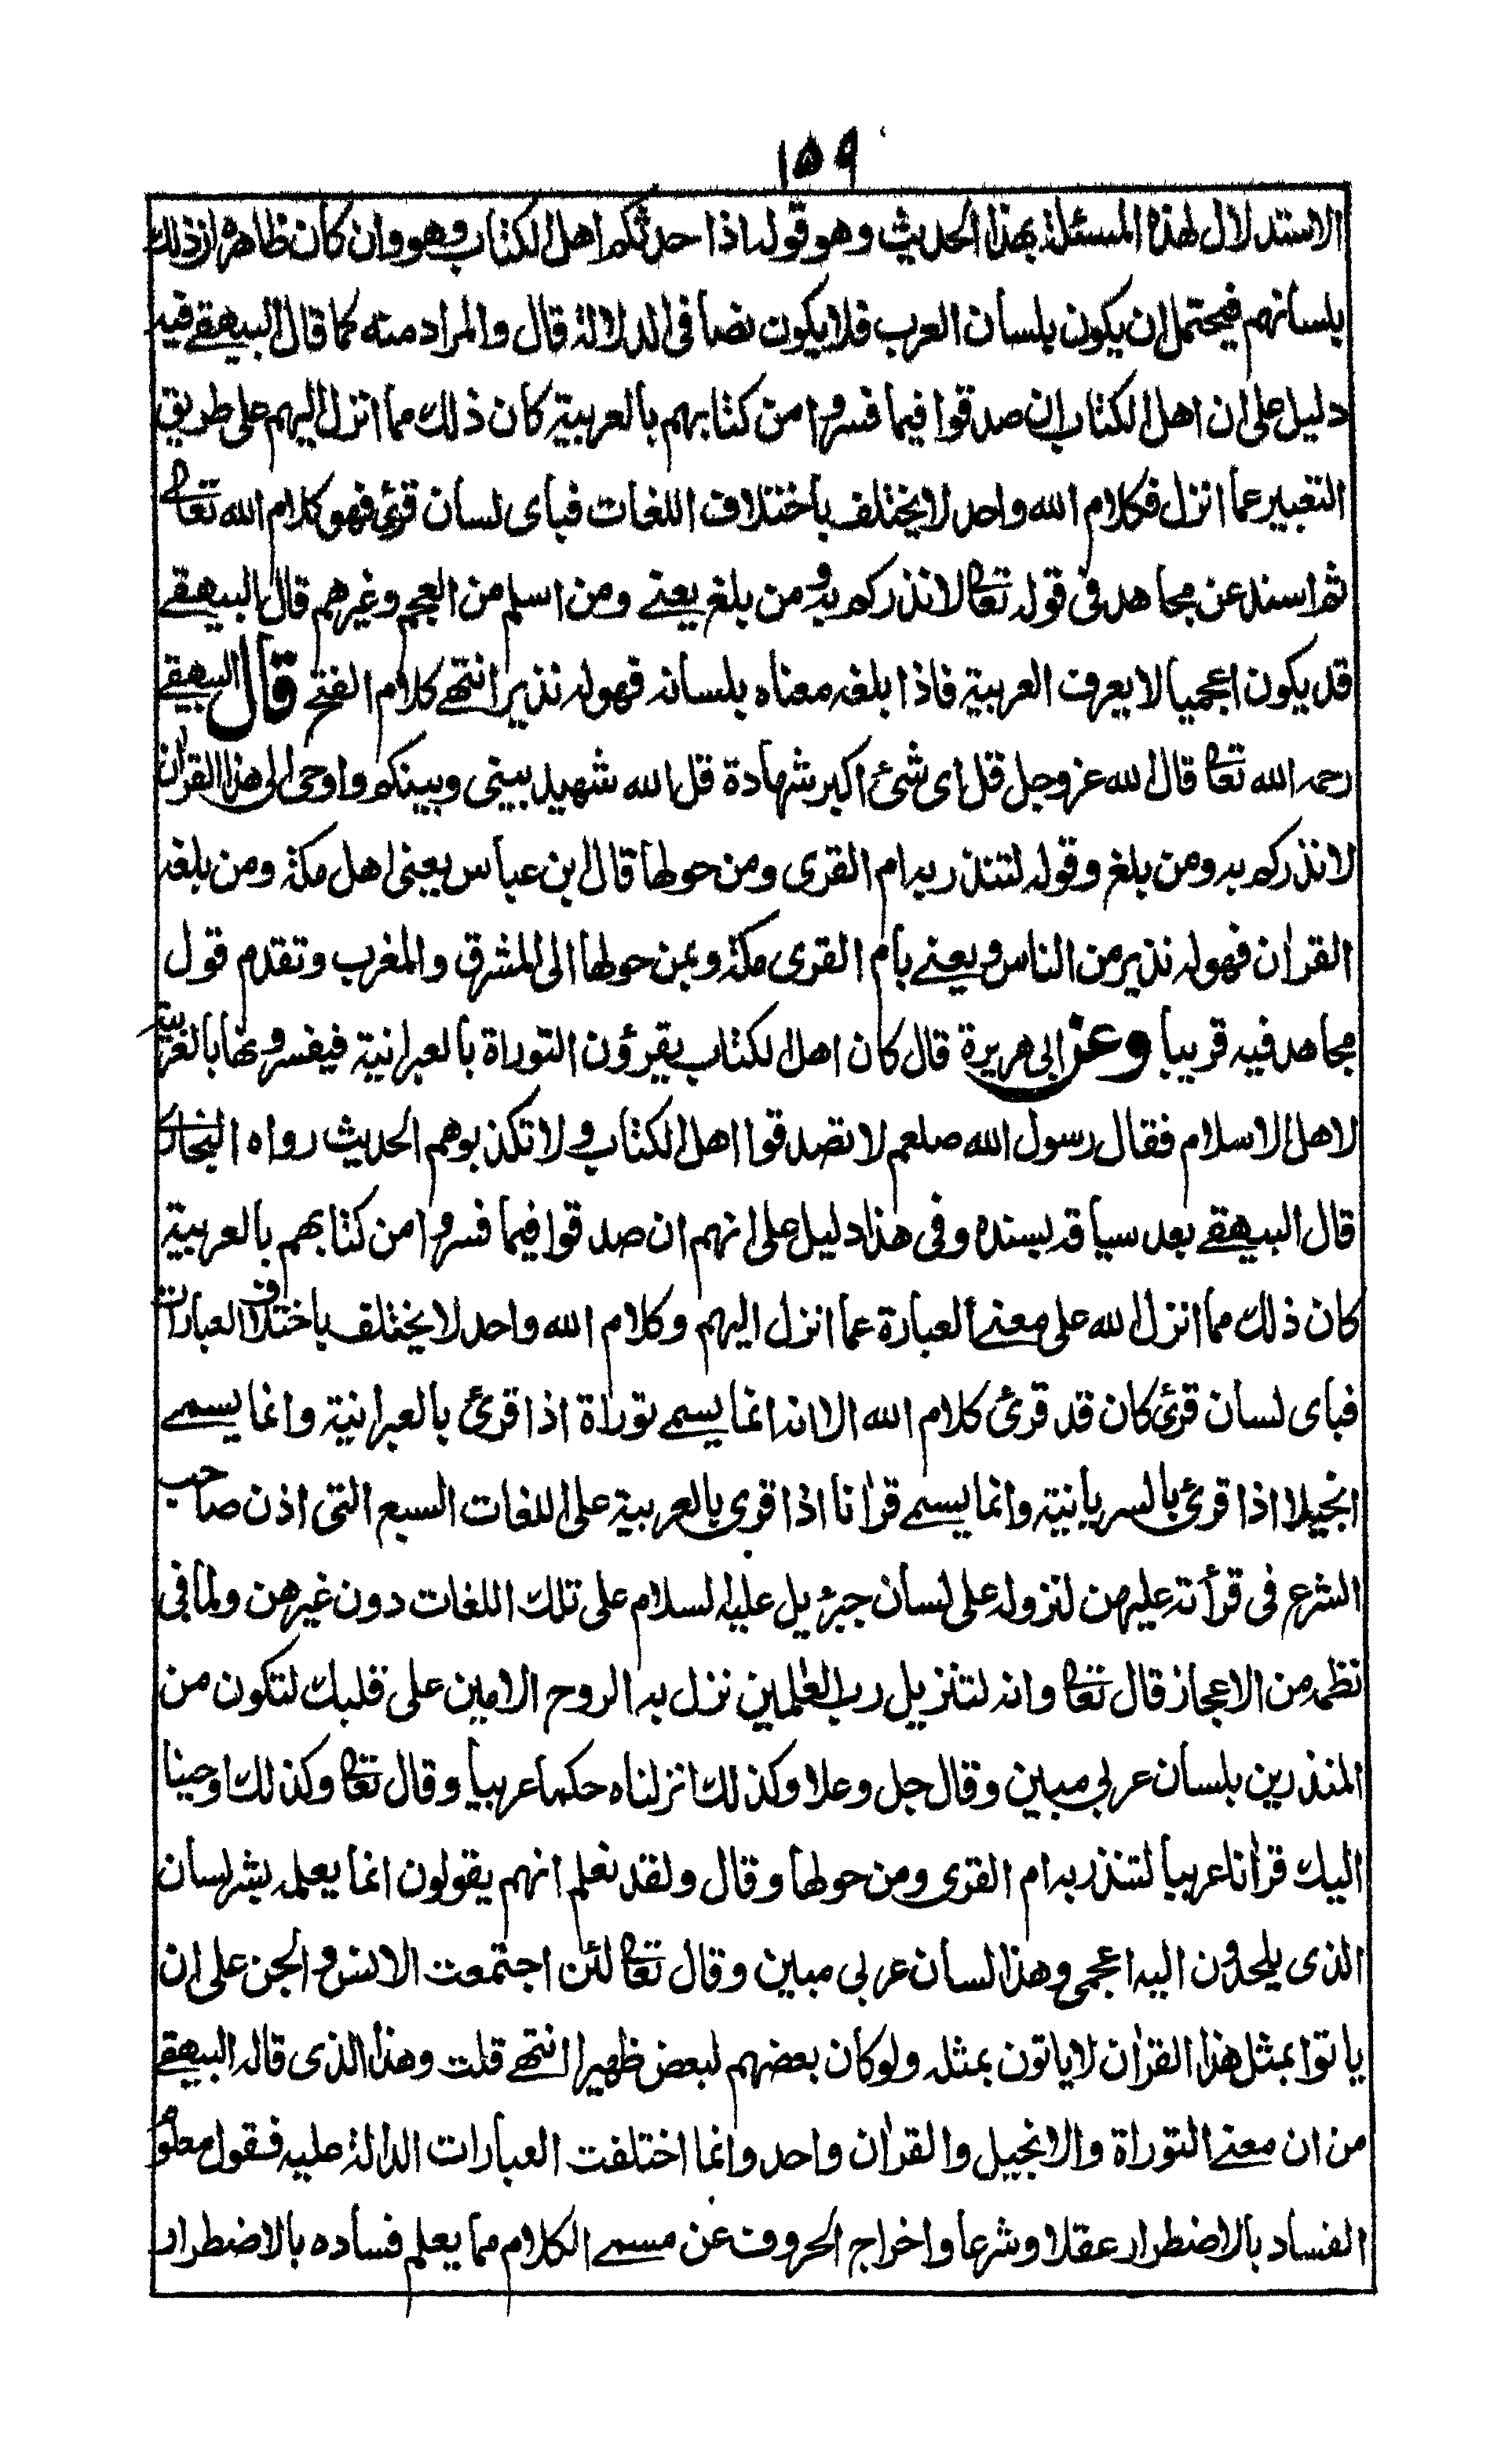 ١٥٩
الاستدلال لهذه المسئلة بهذا الحديث وهو قوله اذا حدثكم اهل الكتاب وهو وان كان ظاهره ان ذلك
بلسانهم فيحتمل ان يكون بلسان العرب فلا يكون نصا فى الدلالة قال والمراد منه كما قال البيهقے فيه
دليل على ان اهل الكتاب ان صدقوا فيما فسروا من كتابهم بالعربية كان ذلك مما انزل اليهم على طريق
التعبير عما انزل فكلام الله واحد لا يختلف باختلاف اللغات فباى لسان قرئ فهو كلام الله تعالى
ثم اسند عن مجاهد فى قوله تعالى لانذركم به ومن بلغ يعنے ومن اسلم من العجم وغيرهم قال البيهقے
قد يكون اعجميا لا يعرف العربية فاذا بلغه معناه بلسانه فهو له نذير انتهے كلام الفتح قال البيهقے
رحمه الله تعالى قال الله عز وجل قل اى شئ اكبر شهادة قل الله شهيد بينى وبينكم واوحى الى هذا القرآن
لانذركم به ومن بلغ وقوله لتنذر به ام القرى ومن حولها قال ابن عباس يعنى اهل مكة ومن بلغه
القرآن فهو له نذير من الناس ويعنے بام القرى مكة وبمن حولها الى المشرق والمغرب وتقدم قول
مجاهد فيه قريبا وعن ابى هريرة قال كان اهل الكتاب يقرؤن التوراة بالعبرانية فيفسرونها بالعربية
لاهل الاسلام فقال رسول الله صلعم لا تصدقوا اهل الكتاب ولا تكذبوهم الحديث رواه البخارى
قال البيهقے بعد سياقه بسنده وفى هذا دليل على انهم ان صدقوا فيما فسروا من كتابهم بالعربية
كان ذلك مما انزل الله على معنے العبارة عما انزل اليهم وكلام الله واحد لا يختلف باختلاف العبارات
فباى لسان قرئ كان قد قرئ كلام الله الا انه انما يسمے توراة اذا قرئ بالعبرانية وانما يسمے
انجيلا اذا قرئ بالسريانية وانما يسمے قرآنا اذا قرى بالعربية على اللغات السبع التى اذن صاحب
الشرع فى قرأته عليهن لنزوله على لسان جبرئيل عليه السلام على تلك اللغات دون غيرهن ولما فى
نظمه من الاعجاز قال تعالى وانه لتنزيل رب العلمين نزل به الروح الامين على قلبك لتكون من
المنذرين بلسان عربى مبين وقال جل وعلا وكذلك انزلناه حكما عربيا وقال تعالى وكذلك اوحينا
اليك قرآنا عربيا لتنذر به ام القرى ومن حولها وقال ولقد نعلم انهم يقولون انما يعلمه بشر لسان
الذى يلحدون اليه اعجمى وهذا لسان عربى مبين وقال تعالى لئن اجتمعت الانس والجن على ان
ياتوا بمثل هذا القرآن لا ياتون بمثله ولو كان بعضهم لبعض ظهيرا انتهے قلت وهذا الذى قاله البيهقے
من ان معنے التوراة والانجيل والقرآن واحد وانما اختلفت العبارات الدالة عليه فقول معلوم
الفساد بالاضطرار عقلا وشرعا واخراج الحروف عن مسمے الكلام مما يعلم فساده بالاضطرار